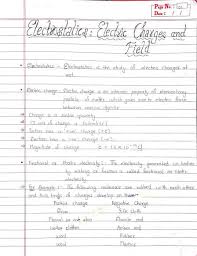 Page No.
Date:
Electrostatics: Electric Charges and
Field
Electrostatics - Electrostatics is the study of electric charges at
rest.
Electric charge - Electric charge is an intrinsic property of elementary
particle of matter which gives rise to electric force
between various objects.
Charge is a scalar quantity
SI unit of charge is coulomb (C)
Proton has a +ve charge (+e)
Electron has a -ve charge (-e)
Magnitude of charge e = 1.6 × 10⁻¹⁹ C
Frictional or Static electricity: The electricity generated on bodies
by rubbing or friction is called frictional or static
electricity.
For Example: The following materials are rubbed with each other
and two kinds of charges develop on them
Positive charge Negative charge
Glass Silk cloth
Plastic rod
Woollen clothes Amber rod
Wool Rubber